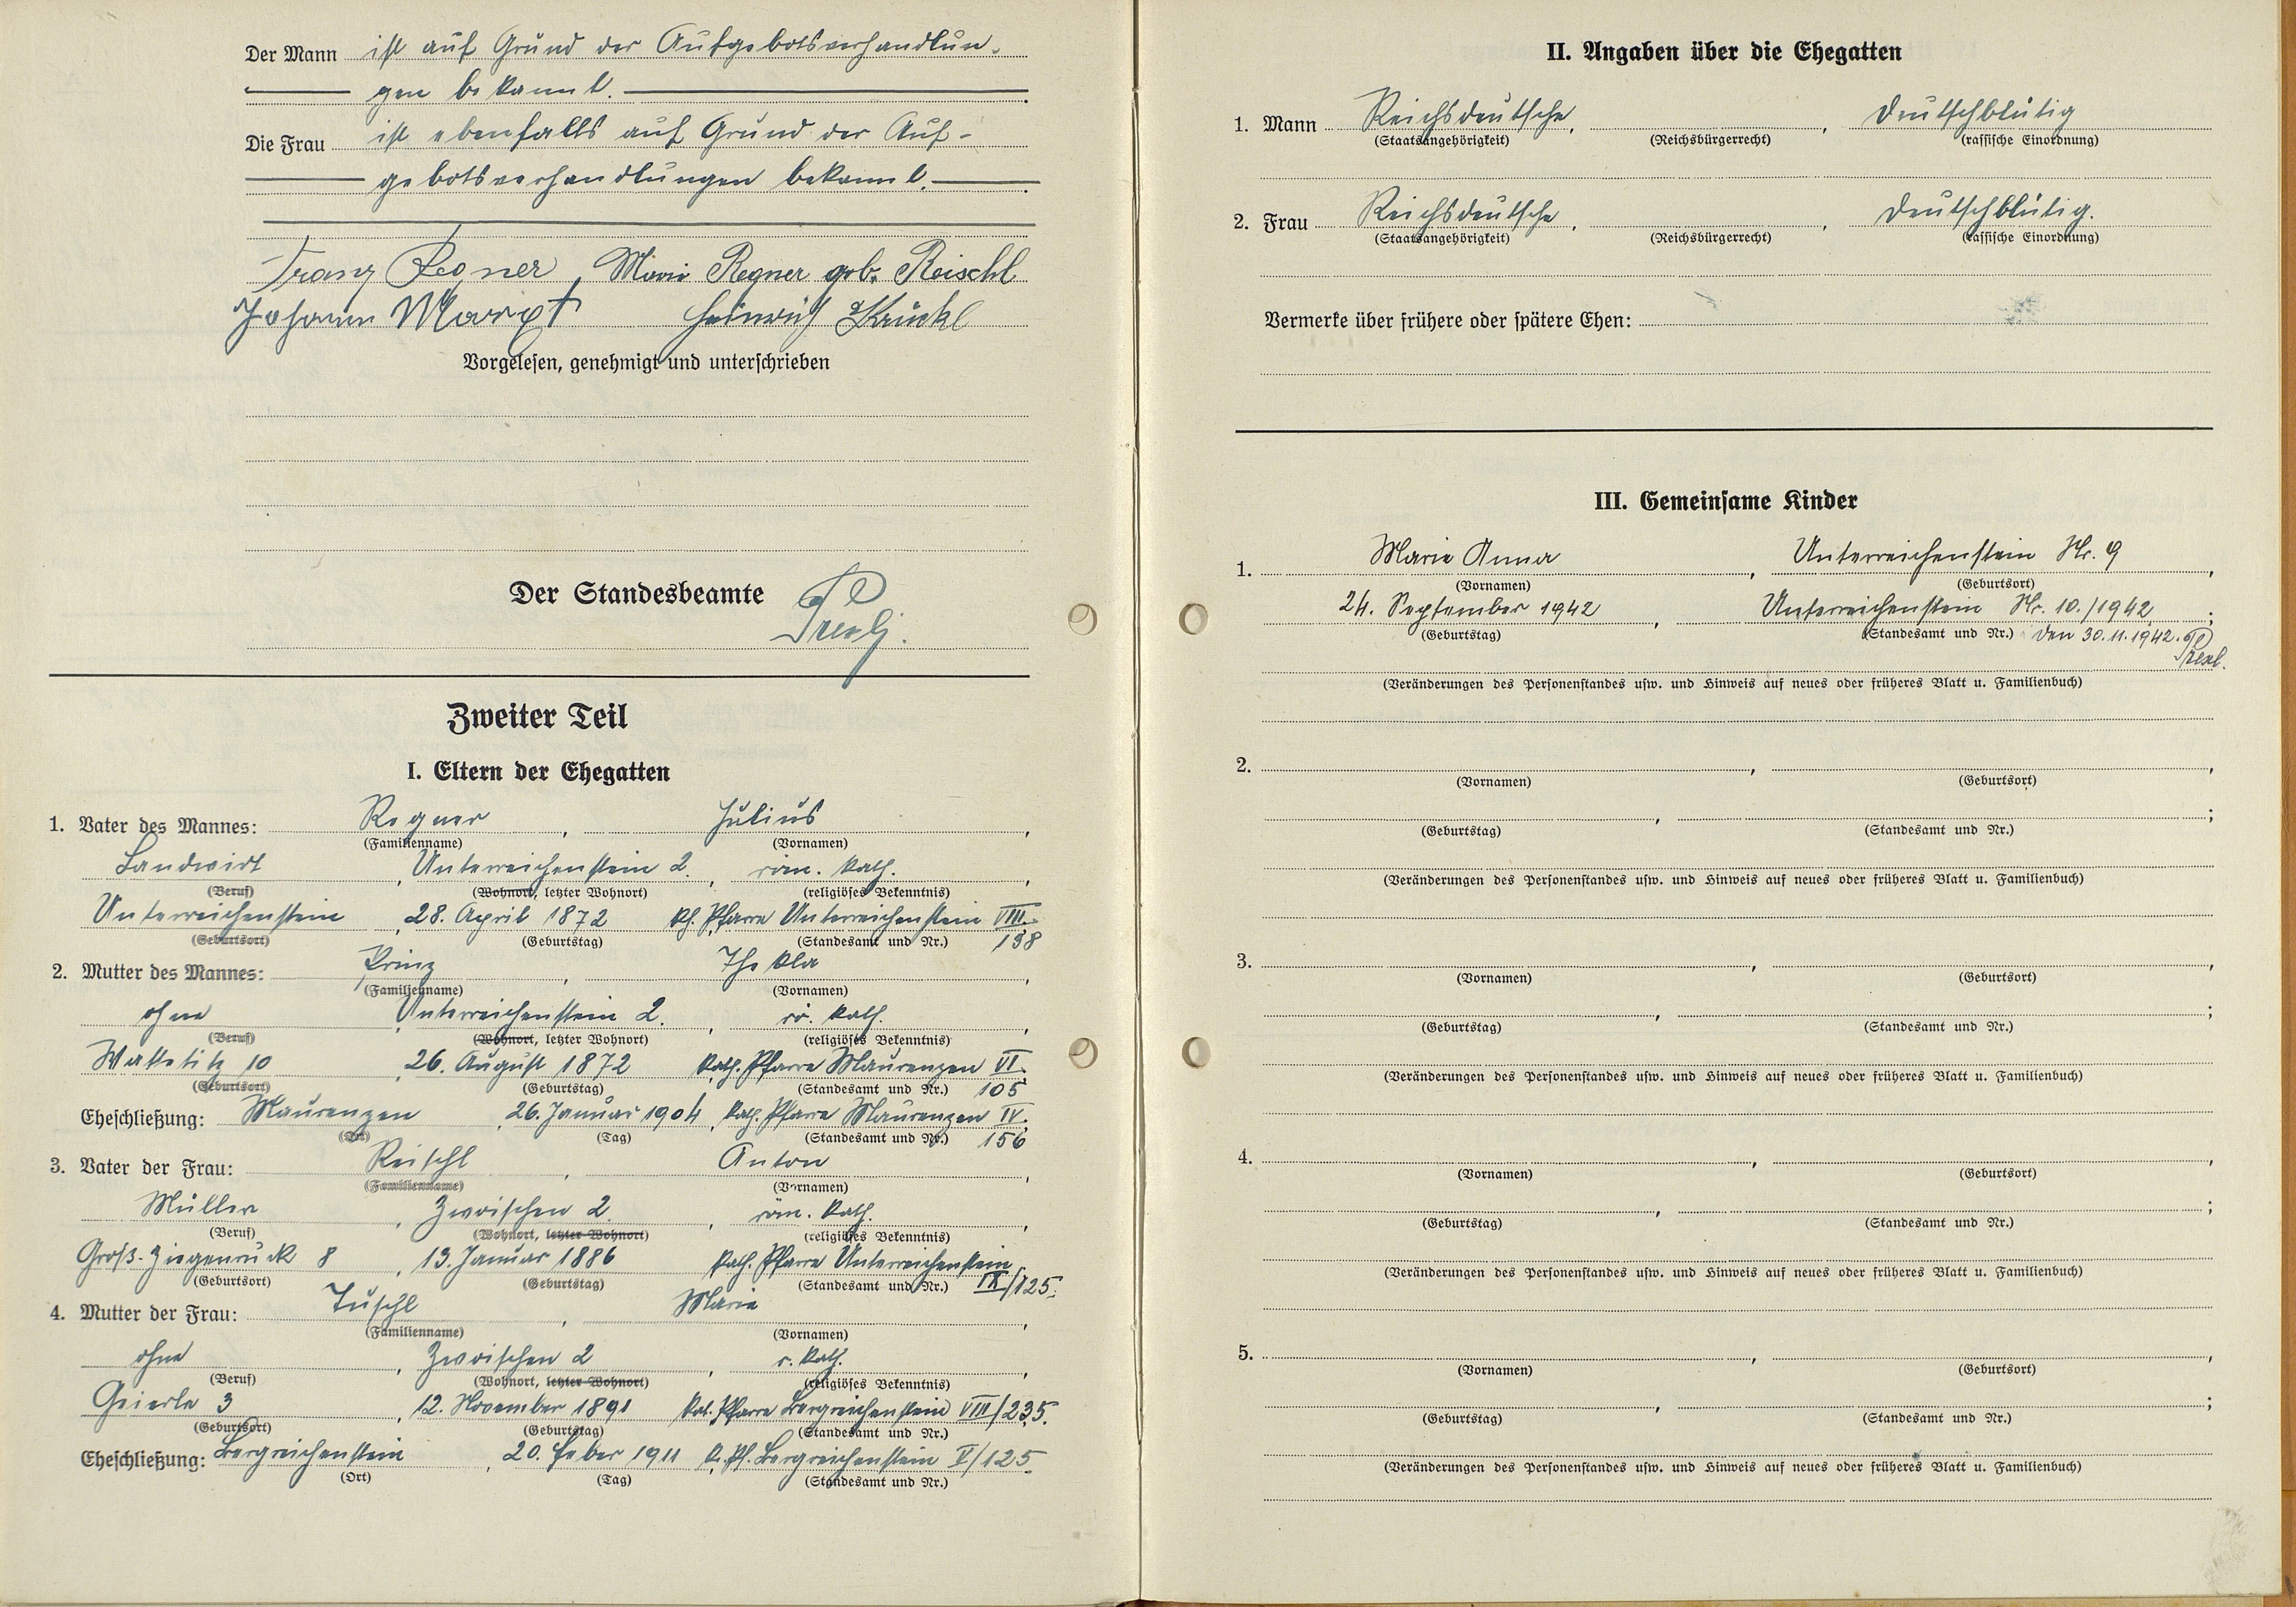 Der Mann ist auf Grund der Aufgebotsverhandlun-
gen bekannt.
Die Frau ist ebenfalls auf Grund der Auf-
gebotsverhandlungen bekannt.
Franz Regner, Marie Regner geb. Reischl
Johann Marxt Heinrich Krückl
Vorgelesen, genehmigt und unterschrieben
Der Standesbeamte
Zweiter Teil
I. Eltern der Ehegatten
1. Vater des Mannes: Regner, Julius,
(Familienname) (Vornamen)
Landwirt, Unterreichenstein 2., röm. kath.,
(Beruf) (Wohnort, letzter Wohnort) (religiöses Bekenntnis)
Unterreichenstein, 28. April 1872 kh. Pfarre Unterreichenstein VIII.
(Geburtsort) (Geburtstag) (Standesamt und Nr.) 138
2. Mutter des Mannes: Prinz, Thekla,
(Familienname) (Vornamen)
ohne, Unterreichenstein 2., rö. kath.,
(Beruf) (Wohnort, letzter Wohnort) (religiöses Bekenntnis)
Watetitz 10, 26. August 1872 kath. Pfarre Maurenzen VI.
(Geburtsort) (Geburtstag) (Standesamt und Nr.) 105
Eheschließung: Maurenzen, 26. Januar 1904, kath. Pfarre Maurenzen IV.
(Ort) (Tag) (Standesamt und Nr.) 156
3. Vater der Frau: Reischl, Anton,
(Familienname) (Vornamen)
Müller, Zwoischen 2, röm. kath.,
(Beruf) (Wohnort, letzter Wohnort) (religiöses Bekenntnis)
Groß-Ziegenruck 8, 13. Januar 1886 kath. Pfarre Unterreichenstein
(Geburtsort) (Geburtstag) (Standesamt und Nr.) IX/125.
4. Mutter der Frau: Tuschl, Marie,
(Familienname) (Vornamen)
ohne, Zwoischen 2, r. kath.,
(Beruf) (Wohnort, letzter Wohnort) (religiöses Bekenntnis)
Geierle 3, 12. November 1891 kat. Pfarre Bergreichenstein VIII/235.
(Geburtsort) (Geburtstag) (Standesamt und Nr.)
Eheschließung: Bergreichenstein, 20. Feber 1911 k. Pf. Bergreichenstein V/125
(Ort) (Tag) (Standesamt und Nr.)
II. Angaben über die Ehegatten
1. Mann Reichsdeutsche, , deutschblütig
(Staatsangehörigkeit) (Reichsbürgerrecht) (rassische Einordnung)
2. Frau Reichsdeutsche, , deutschblütig.
(Staatsangehörigkeit) (Reichsbürgerrecht) (rassische Einordnung)
Vermerke über frühere oder spätere Ehen:
III. Gemeinsame Kinder
1. Marie Anna, Unterreichenstein Nr. 9,
(Vornamen) (Geburtsort)
24. September 1942, Unterreichenstein Nr. 10./1942;
(Geburtstag) (Standesamt und Nr.) den 30.11.1942.
(Veränderungen des Personenstandes usw. und Hinweis auf neues oder früheres Blatt u. Familienbuch)
2. , ,
(Vornamen) (Geburtsort)
, ;
(Geburtstag) (Standesamt und Nr.)
(Veränderungen des Personenstandes usw. und Hinweis auf neues oder früheres Blatt u. Familienbuch)
3. , ,
(Vornamen) (Geburtsort)
, ;
(Geburtstag) (Standesamt und Nr.)
(Veränderungen des Personenstandes usw. und Hinweis auf neues oder früheres Blatt u. Familienbuch)
4. , ,
(Vornamen) (Geburtsort)
, ;
(Geburtstag) (Standesamt und Nr.)
(Veränderungen des Personenstandes usw. und Hinweis auf neues oder früheres Blatt u. Familienbuch)
5. , ,
(Vornamen) (Geburtsort)
, ;
(Geburtstag) (Standesamt und Nr.)
(Veränderungen des Personenstandes usw. und Hinweis auf neues oder früheres Blatt u. Familienbuch)